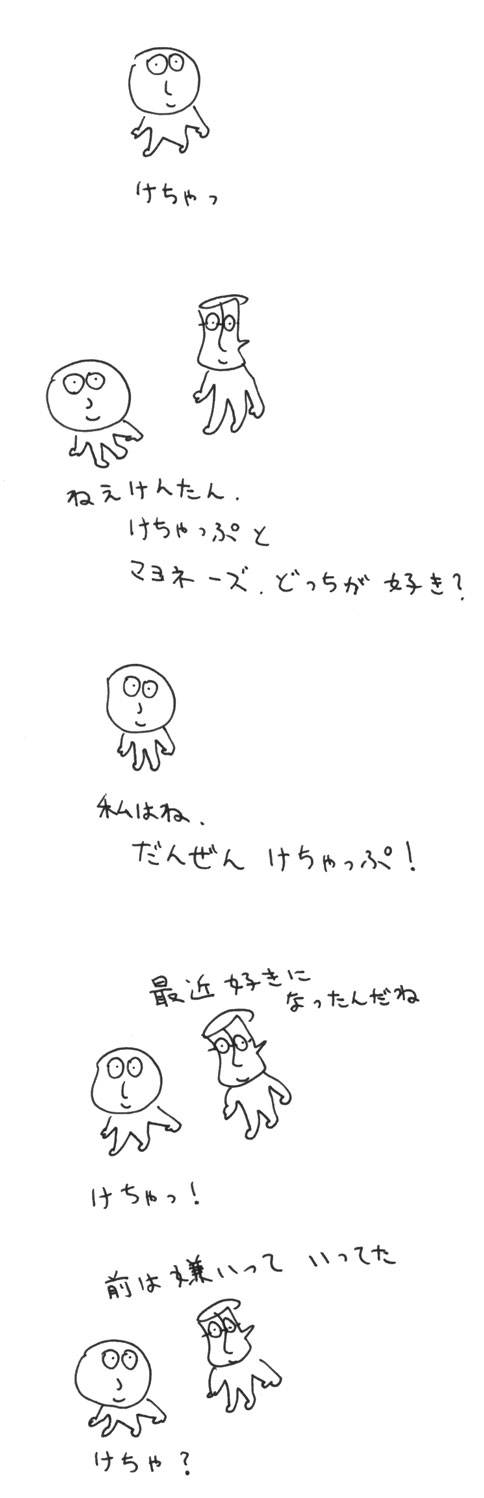 けちゃっ
ねえけんたん、
けちゃっぷと
マヨネーズ、どっちが好き?
私はね、
だんぜん けちゃっぷ!
最近好きに
なったんだね
けちゃっ!
前は嫌いって いってた
けちゃ?